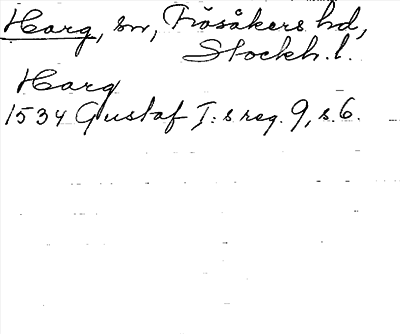 Harg, sn, Frösåkers hd,
Stockh. l.
Harg
1534 Gustaf I:s reg. 9, s. 6.